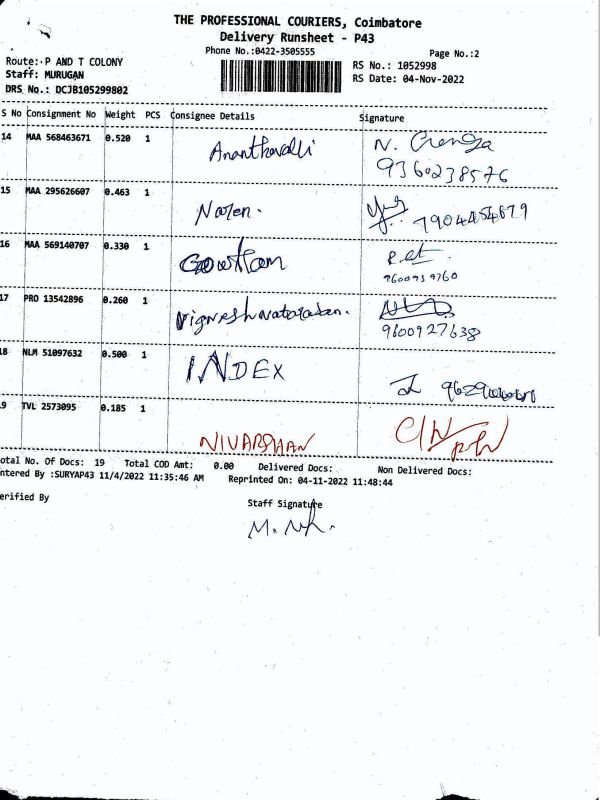 THE PROFESSIONAL COURIERS, Coimbatore
Delivery Runsheet - P43
Phone No.:0422-3505555
Page No.:2
Route: P AND T COLONY
Staff: MURUGAN
DRS No.: DCJB105299802
RS No.: 1052998
RS Date: 04-Nov-2022
S No Consignment No Weight PCS Consignee Details Signature
14 MAA 568463671 0.520 1 Ananthavalli N.
9360238576
15 MAA 295626607 0.463 1 Naren. 7904454679
16 MAA 569140707 0.330 1 Gowtham
9600939760
17 PRO 13542896 0.260 1
9600927638
8 NLM 51097632 0.500 1 INDEX
9 TVL 2573095 0.185 1
otal No. Of Docs: 19 Total COD Amt: 0.00 Delivered Docs: Non Delivered Docs:
ntered By :SURYAP43 11/4/2022 11:35:46 AM Reprinted On: 04-11-2022 11:48:44
erified By
Staff Signature